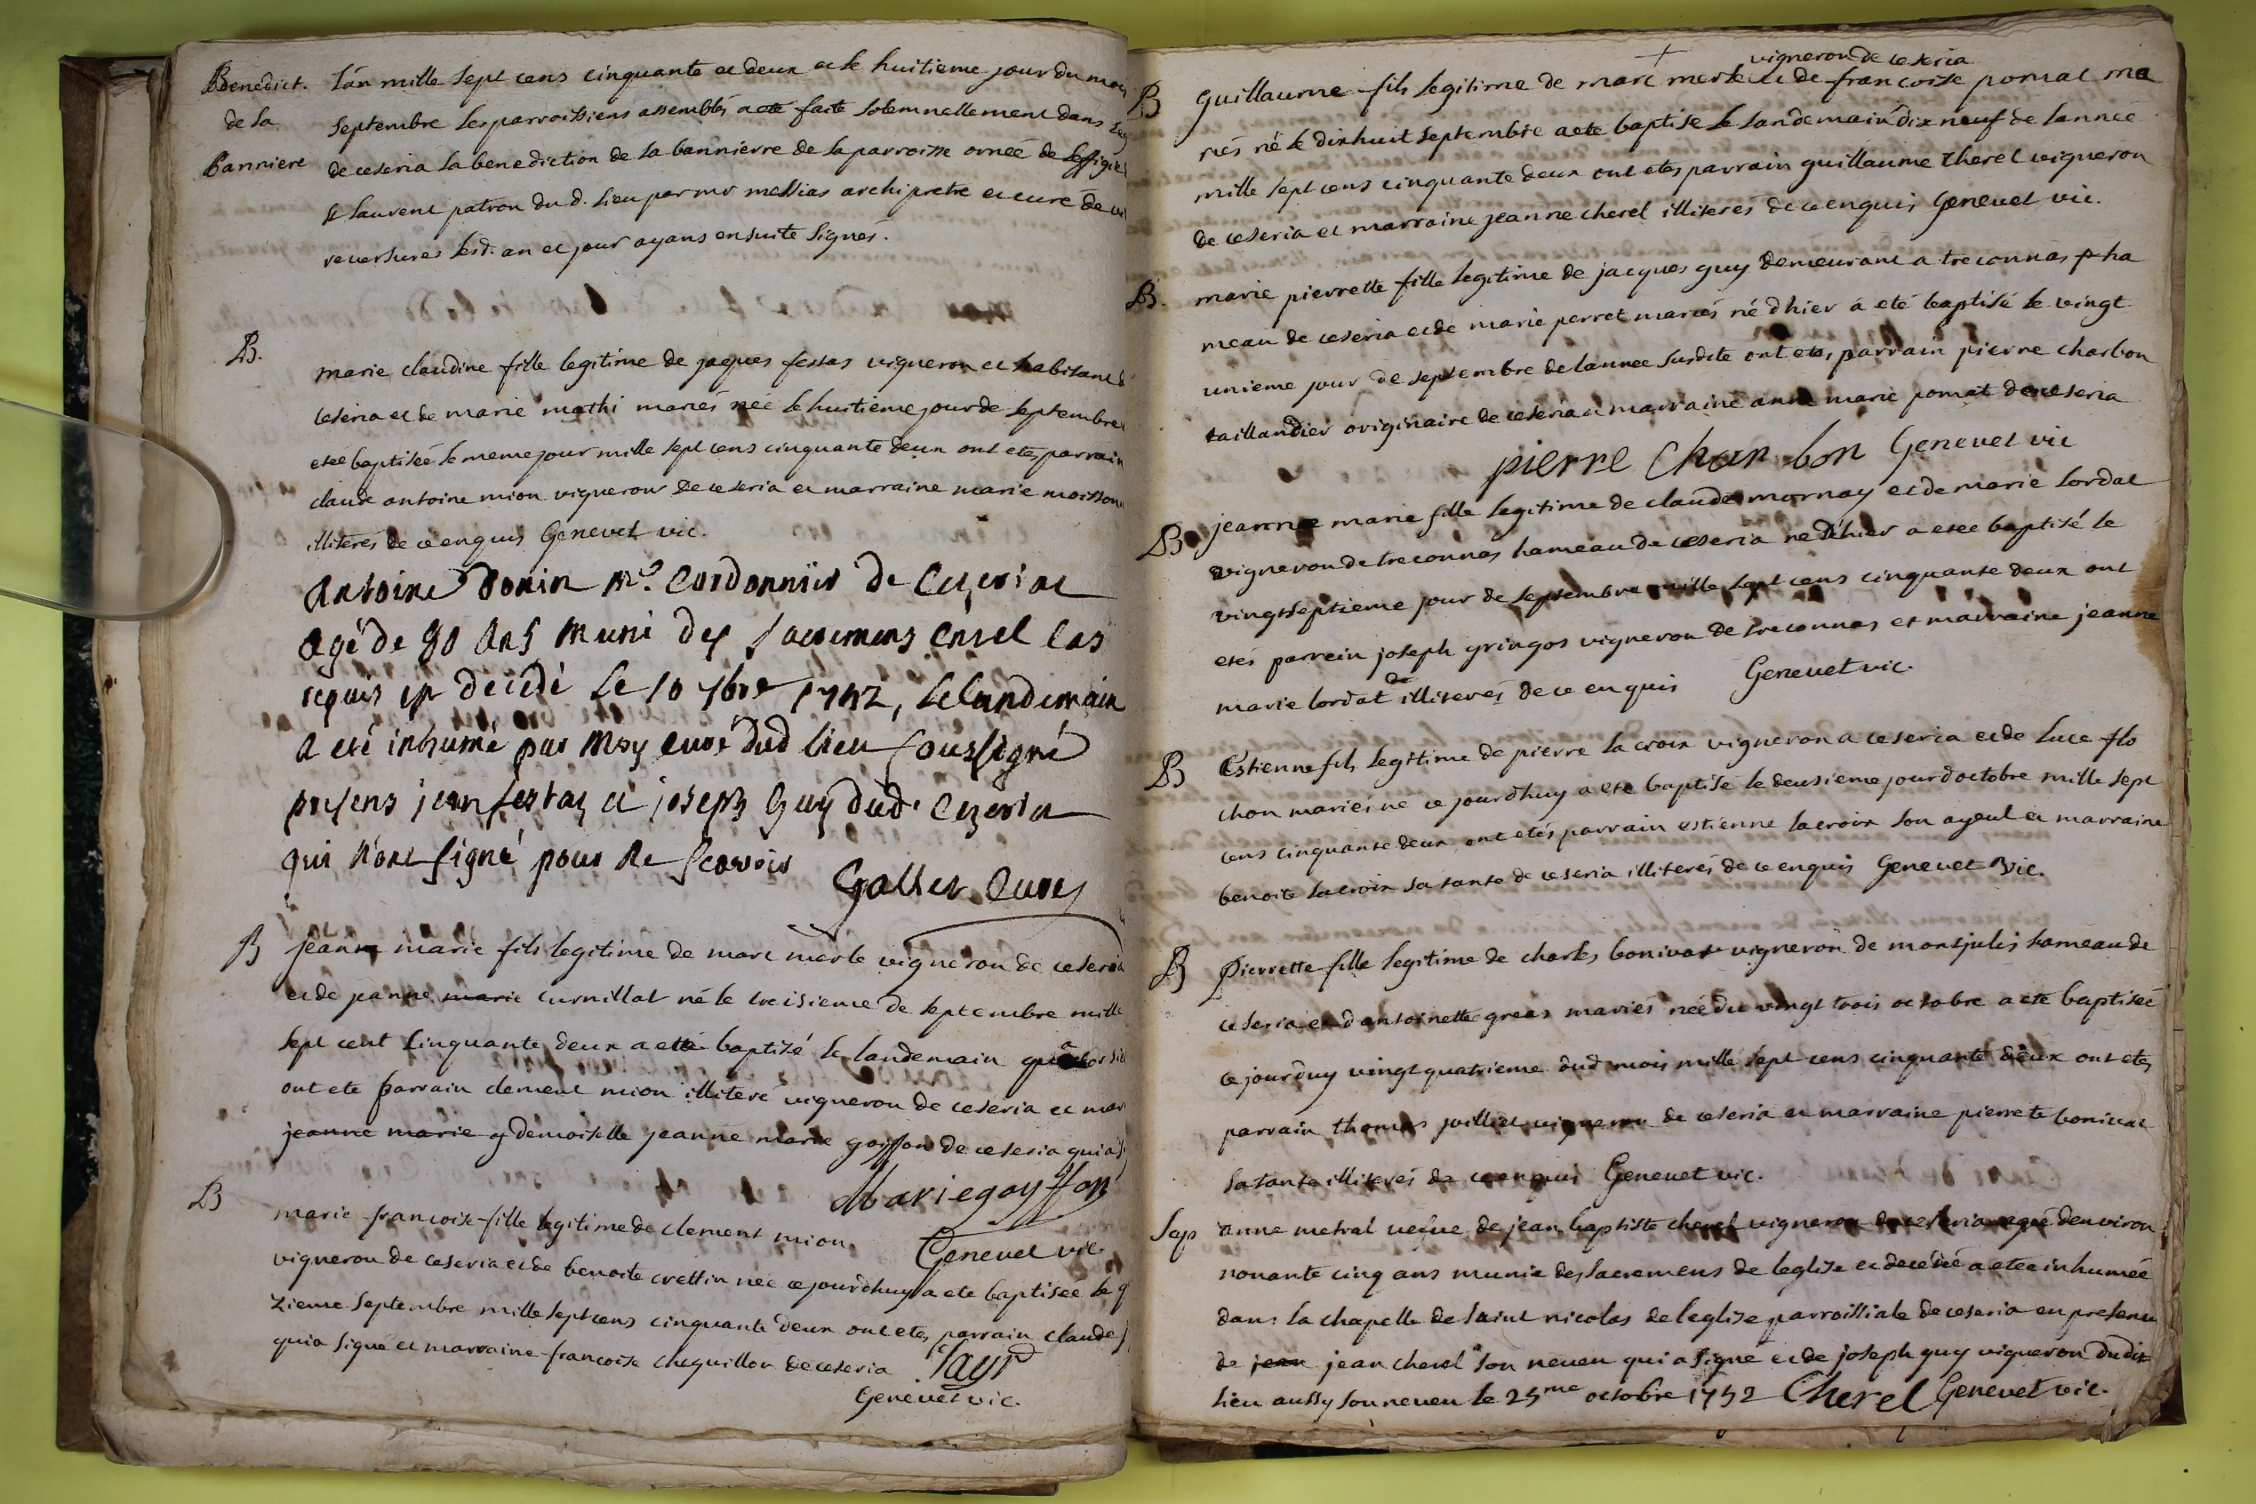 Benedict. L'an mille sept cens cinquante et deux et le huitieme jour du mois
de la septembre les parroissiens assemblés a eté faite solemnellement dans
Banniere de ceseria la benediction de la bannierre de la parroisse ornée de
st laurent patron du d. lieu par mr messias archipretre et curé de
reversures lesd. an et jour ayans ensuite signés.
B. marie claudine fille legitime de jaques festas vigneron et habitant
ceseria et de marie mathi mariés née le huitieme jour de septembre
etée baptisée le meme jour mille sept cens cinquante deux ont etes parrain
claude antoine mion vigneron de ceseria et marraine marie
illiterés de ce enquis Genevet vic.
Antoine donin Me. Cordonnier de Cezeriat
agé de 80 ans muni des sacremens en tel cas
requis est decedé le 10 7bre 1752, le landemain
a eté inhumé par moy curé dud lieu soussigné
presens jean festaz et joseph Guy dud. Cezeriat
qui n'ont signé pour ne scavoir
Gallier Curé
B jeanne marie fils legitime de marc merle vigneron de ceseria
et de jeanne marie curnillat né le treisieme de septembre mille
sept cent cinquante deux a eté baptisé le landemain
ont ete parrain clement mion illiteré vigneron de ceseria et mar
jeanne marie g demoiselle jeanne marie goyffon de ceseria qui a
Marie goyffon
B marie francoise fille legitime de clement mion
Genevet vic.
vigneron de ceseria et de benoite crettin née ce jourdhuy a ete baptisée le q
zieme septembre mille sept cens cinquante deux ont etes parrain claude
qui a signé et marraine francoise cheguillon de ceseria
Genevet vic.
vigneron de ceseria
B Guillaume fils legitime de marc merle et de francoise pomat ma
riés né le dixhuit septembre a ete baptisé le landemain dix neuf de l'année
mille sept cens cinquante deux ont etes parrain guillaume cherel vigneron
de ceseria et marraine jeanne cherel illiterés de ce enquis Genevet vic.
B. marie pierrette fille legitime de jacques guy demeurant a treconnas ha
meau de ceseria et de marie perret mariés né d'hier a eté baptisé le vingt
unieme jour de septembre de l'annee susdite ont etes parrain pierre charbon
taillandier originaire de ceseria et marraine anne marie pomat de ceseria
pierre Charbon Genevet vic
B jeanne marie fille legitime de claude mornay et de marie lordat
vigneron de treconnas hameau de ceseria né d'hier a etée baptisé le
vingtseptieme jour de septembre mille sept cens cinquante deux ont
etés parrein joseph gringos vigneron de treconnas et marraine jeanne
marie lordat illiterés de ce enquis Genevet vic.
B Estienne fils legitime de pierre la croix vigneron a ceseria et de luce flo
chon mariés né ce jourdhuy a ete baptisé le deusieme jour d'octobre mille sept
cens cinquante deux ont etés parrain estienne lacroix son ayeul et marraine
benoite lacroix sa tante de ceseria illiterés de ce enquis Genevet Vic.
B Pierrette fille legitime de charles bonivar vigneron de montjulis hameau de
ceseria et d'antoinette greas mariés née du vingt trois octobre a eté baptiseé
ce jourduy vingt quatrieme dud mois mille sept cens cinquante deux ont etes
parrain thomas juilliet vigneron de ceseria et marraine pierrete bonivar
sa tante illiterés de ce enquis Genevet vic.
Sep anne metral vefve de jean baptiste cherel vigneron de ceseria agé d'environ
nonante cinq ans munie des sacremens de l'eglise et decedeé a etee inhumeé
dans la chapelle de saint nicolas de l'eglise parroissiale de ceseria en presence
de jean jean cherel son neveu qui a signé et de joseph guy vigneron dudit
lieu aussy son neveu le 25me octobre 1752 Cherel Genevet vic.